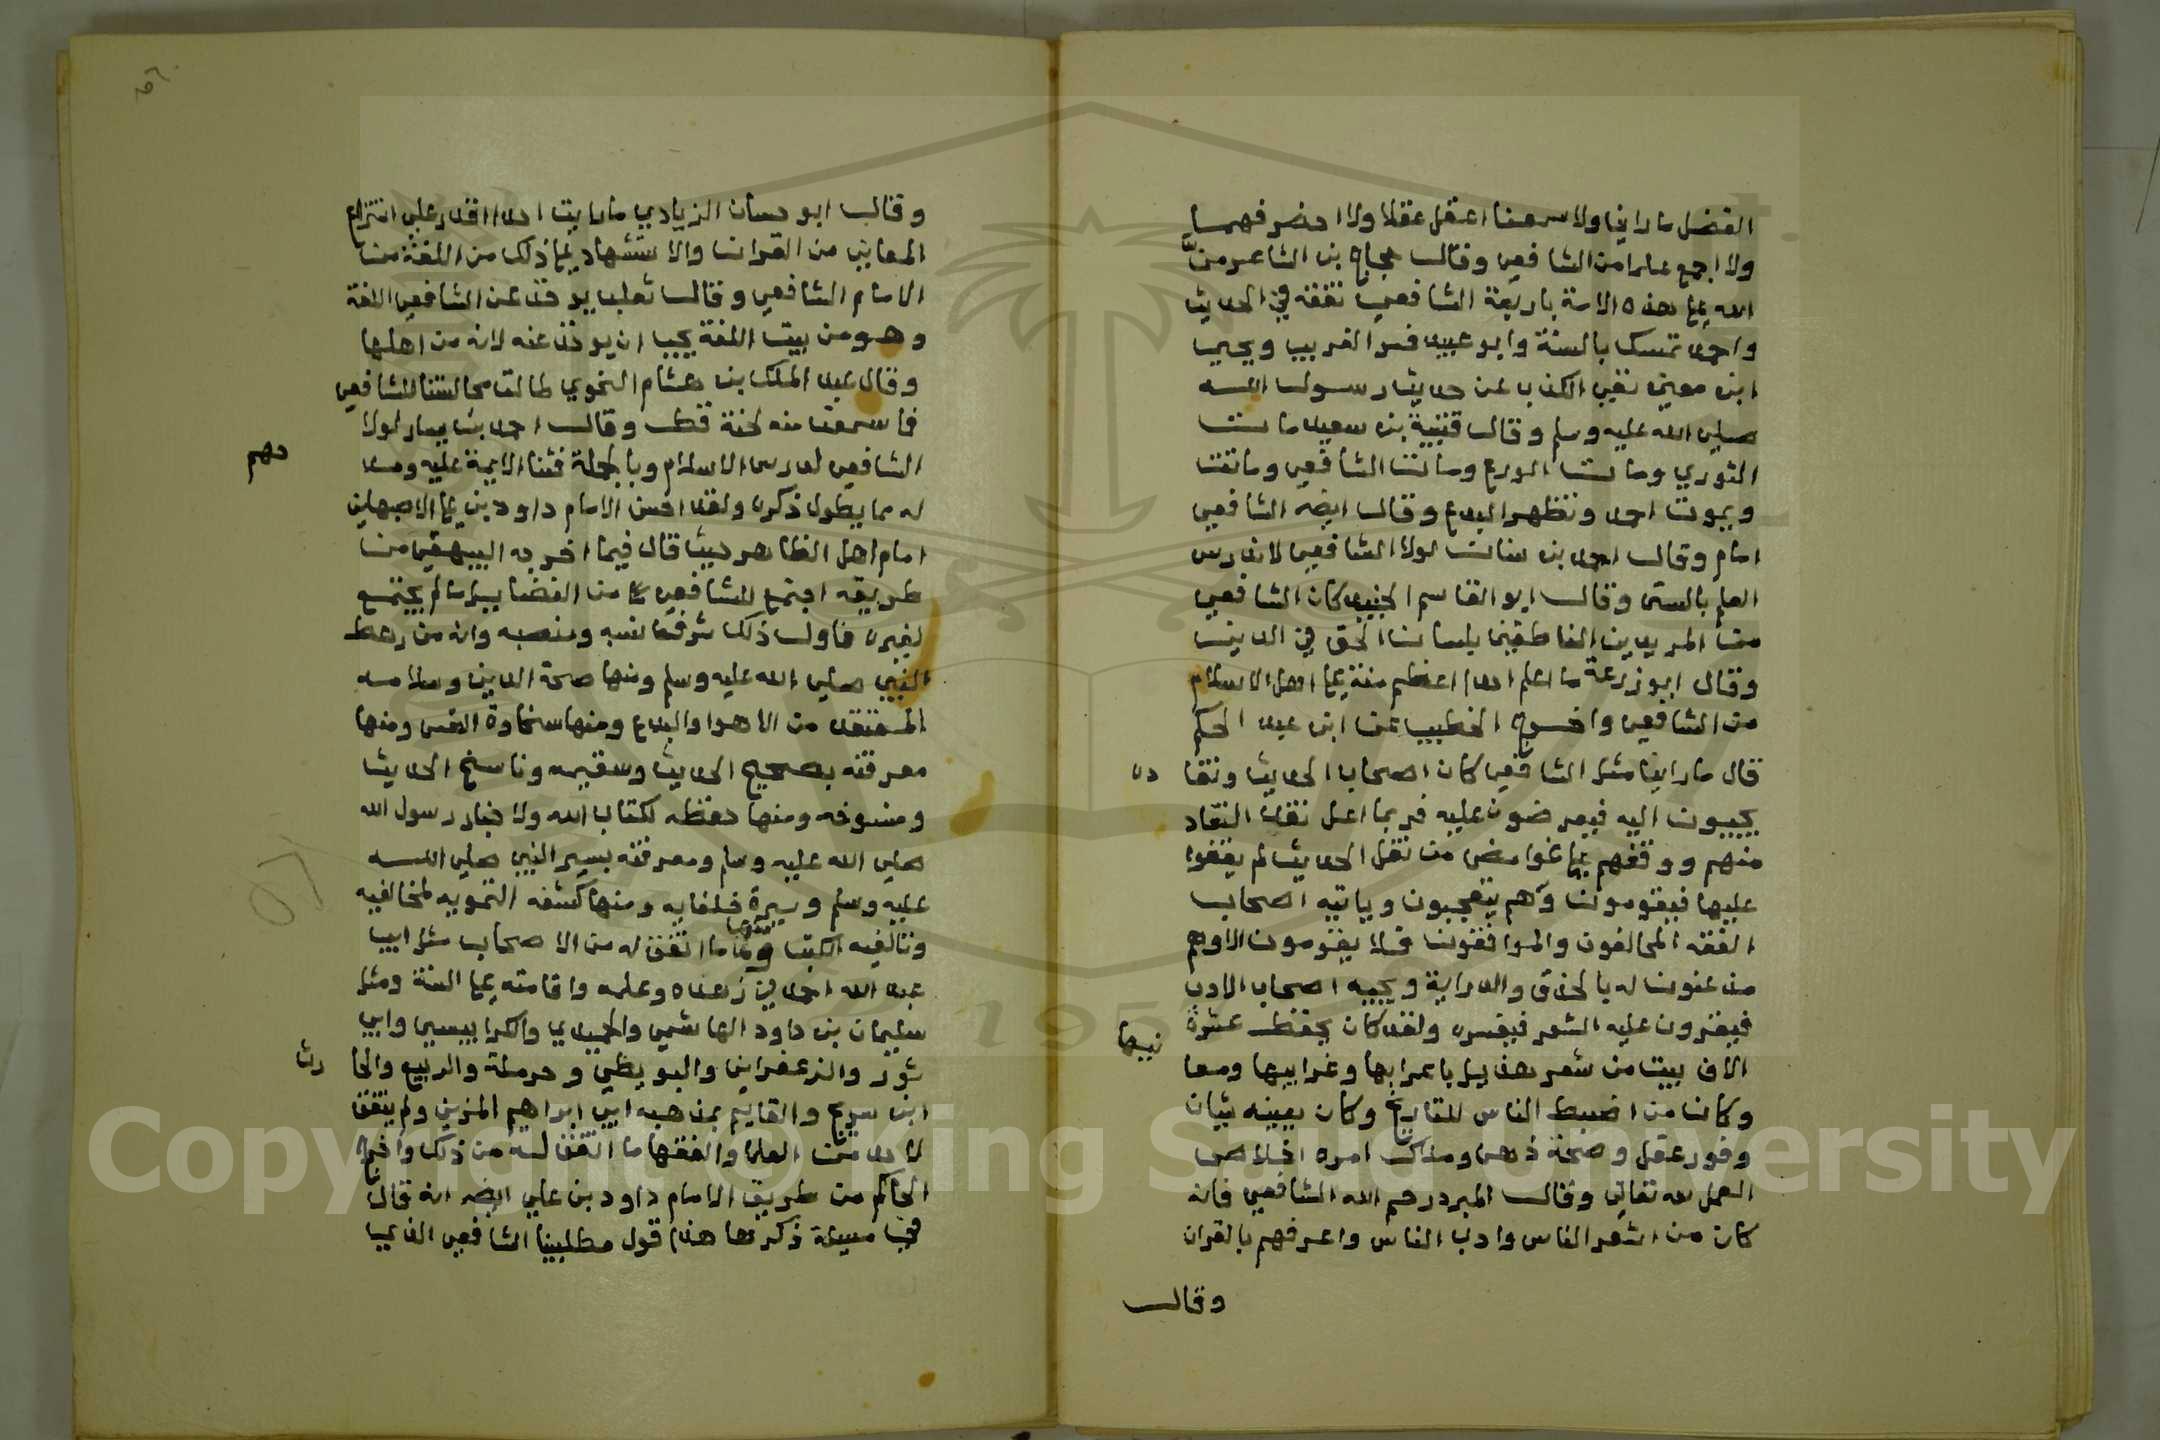 الفضل ما راينا ولا سمعنا اعقل عقلا ولا احضر فهما
ولا اجمع علما من الشافعي وقال حجاج بن الشاعر منّ
الله على هذه الامة باربعة الشافعي تفقه في الحديث
واحمد تمسك بالسنة وابو عبيد فسر الغريب ويحيى
ابن معين نفي الكذب عن حديث رسول الله
صلى الله عليه وسلم وقال قتيبة بن سعيد مات
الثوري ومات الورع ومات الشافعي وماتت
ويموت احمد وتظهر البدع وقال ايضا الشافعي
امام وقال احمد بن سنان لولا الشافعي لاندرس
العلم بالسنن وقال ابو القاسم الجنيد كان الشافعي
من المريدين الناطقين بلسان الحق في الدين
وقال ابو زرعة ما اعلم احدا اعظم منة على اهل الاسلام
من الشافعي واخرج الخطيب عن ابن عبد الحكم
قال ما راينا مثل الشافعي كان اصحاب الحديث ونقا
ده
يجيبون اليه فيعرضون عليه فربما اعل نقد النقاد
منهم ووقفهم على غوامض من نقل الحديث لم يقفوا
عليها فيقومون وهم يتعجبون وياتيه اصحاب
الفقه المخالفون والموافقون فلا يقومون الا وهم
مذعنون له بالحذق والدراية ويجيه اصحاب الادب
فيقرون عليه الشعر فيفسره ولقد كان يحفظ عشرة
الاف بيت من شعر هذيل باعرابها وغرايبها ومعا
نيها
وكان من اضبط الناس للتاريخ وكان يعينه شيان
وفور عقل وصحة ذهن وملاك امره اخلاص
العمل لله تعالى وقال المبرد رحم الله الشافعي فانه
كان من اشعر الناس وادب الناس واعرفهم بالقران
وقال
وقال ابو حسان الزيادي ما رايت احدا اقدر على انتزاع
المعاني من القران والاستشهاد على ذلك من اللغة من
الامام الشافعي وقال ثعلب يوخذ عن الشافعي اللغة
وهو من بيت اللغة يجب ان يوخذ عنه لانه من اهلها
وقال عبد الملك بن هشام النحوي طالت مجالستنا للشافعي
فما سمعت منه لحنة قط وقال احمد بن يسار لولا
الشافعي لدرس الاسلام وبالجملة فثنا الايمة عليه ومد
حهم
له مما يطول ذكره ولقد احسن الامام داود بن على الاصبهاني
امام اهل الظاهر حيث قال فيما اخرجه البيهقي من
طريقه اجتمع للشافعي من الفضايل ما لم يجتمع
لغيره فاول ذلك شرف نسبه ومنصبه وانه من رهط
النبي صلى الله عليه وسلم ومنها صحة الدين وسلامه
المعتقد من الاهوا والبدع ومنها سخاوة النفس ومنها
معرفته بصحيح الحديث وسقيمه وناسخ الحديث
ومنسوخه ومنها حفظه لكتاب الله ولاخبار رسول الله
صلى الله عليه وسلم ومعرفته بسير النبي صلى الله
عليه وسلم وسيرة خلفايه ومنها كشفه التمويه لمخالفيه
وتاليفه الكتب ومنها ما اتفق له من الاصحاب مثل ابي
عبد الله احمد في زهده وعلمه واقامته على السنة ومثل
سليمان بن داود الهاشمي والحميدي والكرابيسي وابي
ثور والزعفراني والبويطي وحرملة والربيع والحا
رث
ابن سريج والقايم بمذهبه ابي ابراهيم المزني ولم يتفق
لاحد من العلما والفقها ما اتفق له من ذلك واخرج
الحاكم من طريق الامام داود بن علي ايضا انه قال
في مسيلة ذكرها هذا قول مطلبينا الشافعي الذي
Copyright © King Saud University
1957